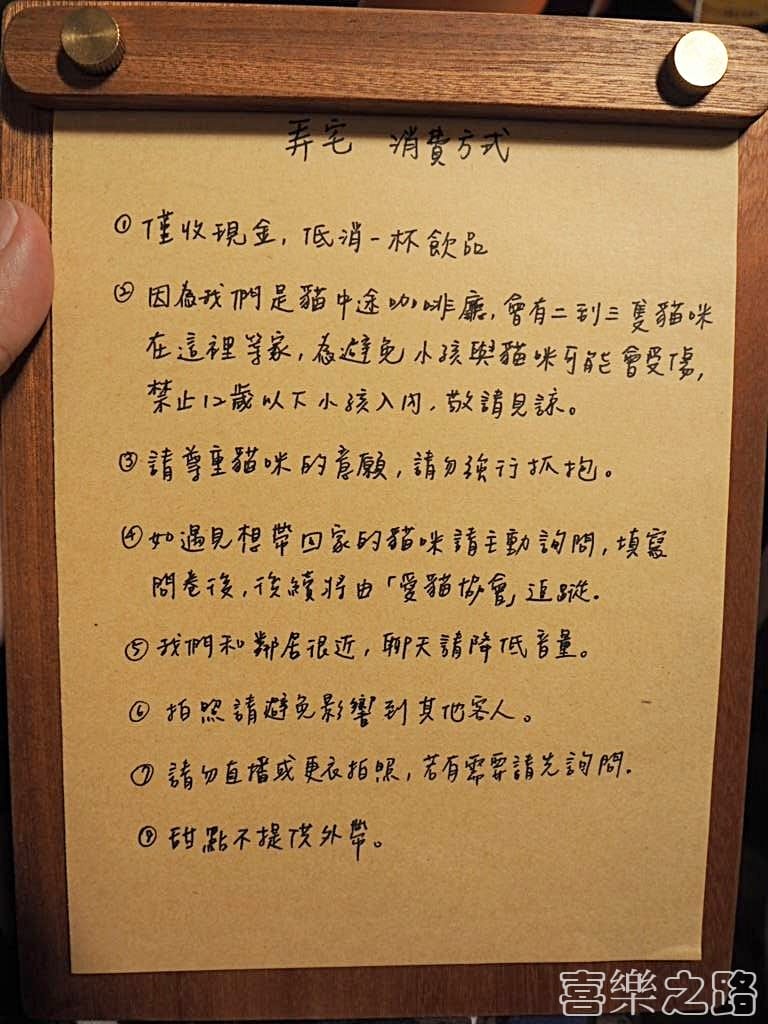 弄宅 消費方式
① 僅收現金,低消一杯飲品
② 因為我們是貓中途咖啡廳,會有二到三隻貓咪
在這裡等家,為避免小孩與貓咪可能會受傷,
禁止12歲以下小孩入內,敬請見諒。
③ 請尊重貓咪的意願,請勿強行抓抱。
④ 如遇見想帶回家的貓咪請主動詢問,填寫
問卷後,後續將由「愛貓協會」追蹤.
⑤ 我們和鄰居很近,聊天請降低音量。
⑥ 拍照請避免影響到其他客人。
⑦ 請勿直播或更衣拍照,若有需要請先詢問.
⑧ 甜點不提供外帶。
喜樂之路